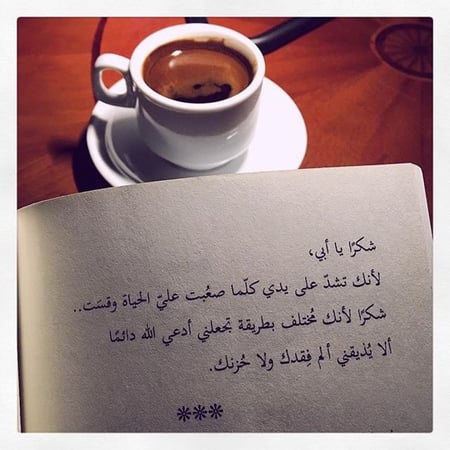 شكرًا يا أبي،
لأنك تشدّ على يدي كلّما صعُبت عليّ الحياة وقسَت..
شكرًا لأنك مُختلف بطريقة تجعلني أدعي الله دائمًا
ألا يُذيقني ألم فِقدك ولا حُزنك.
***